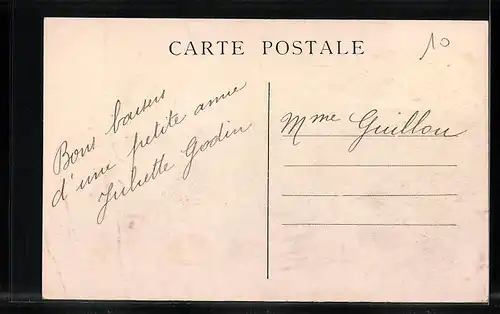 CARTE POSTALE
10
Bons baisers
d'une petite amie
Juliette Godin
Mme Guillou